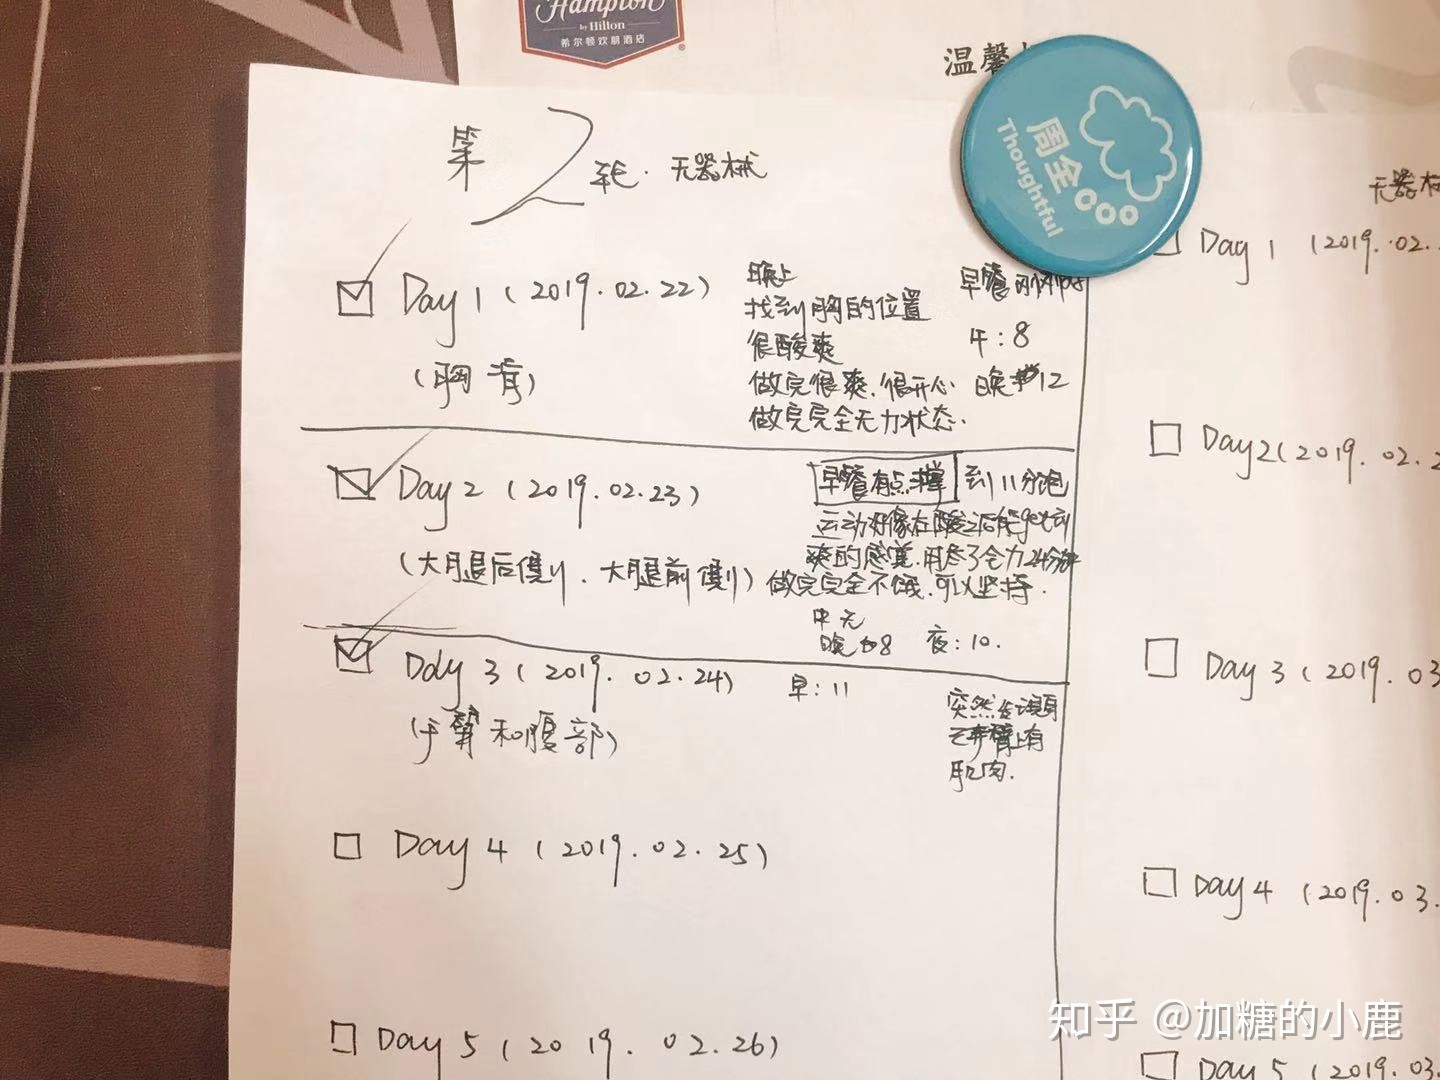 Hampton
by Hilton
希尔顿欢朋酒店
温馨
周全
Thoughtful
第2轮. 无器械
Day 1 (2019.02.22)
(胸 背)
晚上
找到胸的位置
很酸爽
做完很爽.很开心
做完完全无力状态.
早餐
午:8
晚 12
Day 2 (2019.02.23)
(大腿后侧、大腿前侧)
早餐有点撑 到11分饱
运动好像在酸之后能get到
爽的感觉,用尽了全力24分钟
做完完全不饿,可以坚持.
中 无
晚 8 夜:10.
Day 3 (2019.02.24)
(手臂和腹部)
早:11
突然发现自
己手臂上有
肌肉.
Day 4 (2019.02.25)
Day 5 (2019.02.26)
无器械
Day 1 (2019.02.
Day 2 (2019.02.2
Day 3 (2019.03
Day 4 (2019.03.
Day 5 (2019.03.
知乎 @加糖的小鹿